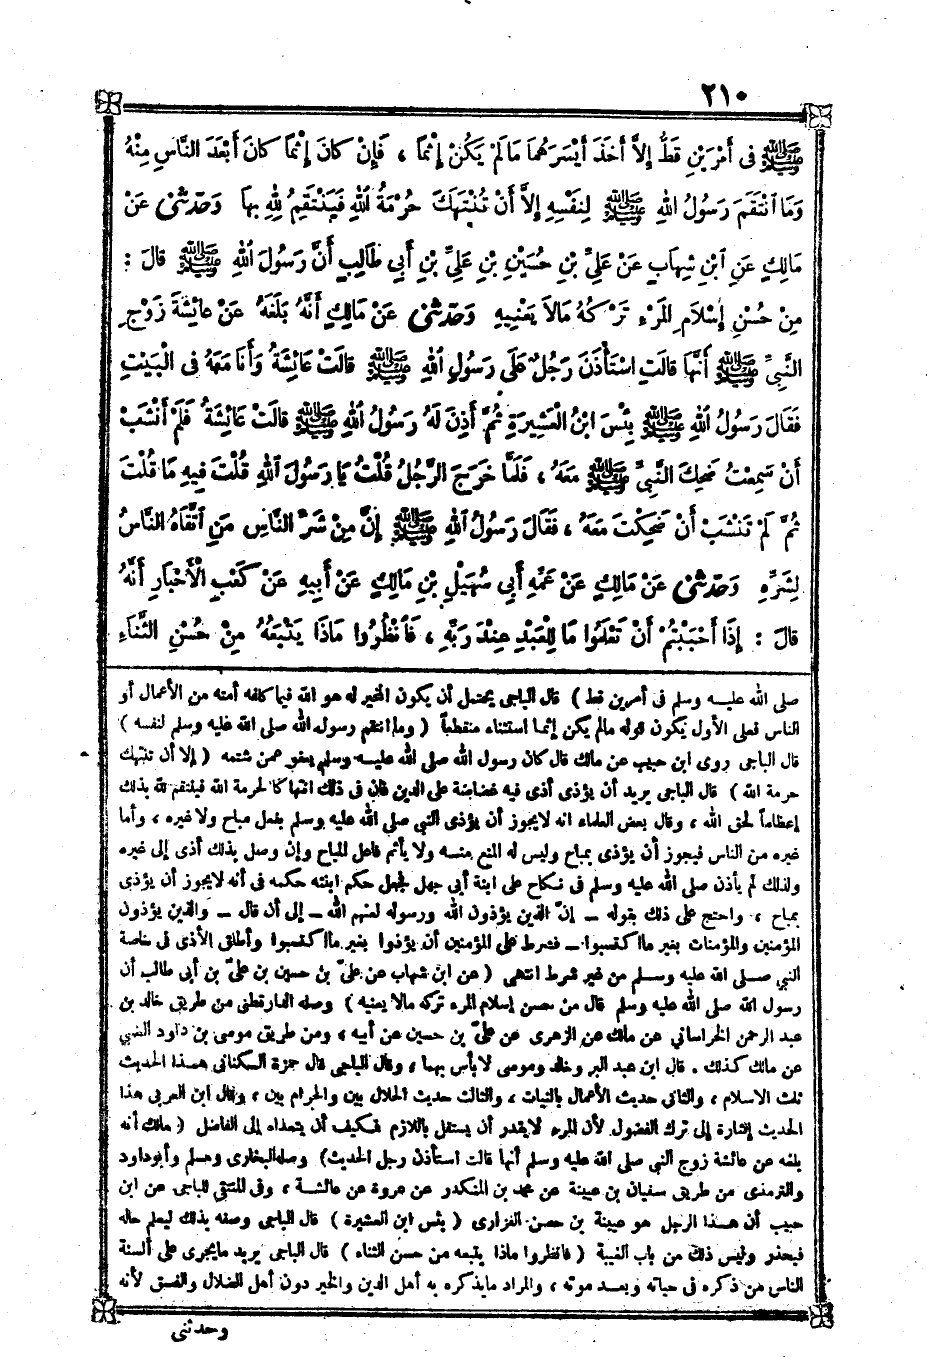 ٢١٠
ﷺ فِى أَمْرَيْنِ قَطُّ إِلاَّ أَخَذَ أَيْسَرَهُمَا مَالَمْ يَكُنْ إِثْماً ، فَإِنْ كانَ إِثْماً كانَ أَبْعَدَ النَّاسِ مِنْهُ
وَمَا ٱنْتَقَمَ رَسُولُ اللهِ ﷺ لِنَفْسِهِ إِلاَّ أَنْ تُنْتَهَكَ حُرْمَةُ للهِ فَيَنْتَقِمُ لِلهِ بِها وَحَدَّثَنِى عَنْ
مَالِكٍ عَنِ ٱبْنِ شِهَابٍ عَنْ عَلِىِّ بْنِ حُسَيْنِ بْنِ عَلِىِّ بْنِ أَبِي طَالِبٍ أَنَّ رَسُولَ ٱللهِ ﷺ قالَ :
مِنْ حُسْنِ إِسْلاَمِ المَرْءِ تَرْكُهُ مَالاَ يَعْنِيهِ وَحَدَّثَنِى عَنْ مَالِكٍ أَنَّهُ بَلَغَهُ عَنْ عائِشَةَ زَوْجِ
النَّبِىِّ ﷺ أَنَّهَا قالَتِ اسْتَأْذَنَ رَجُلٌ عَلَى رَسُولِ اللهِ ﷺ قالَتْ عَائِشَةُ وَأَنَا مَعَهُ فى الْبَيْتِ
فَقَالَ رَسُولُ اللهِ ﷺ بِئْسَ ابْنُ الْعَشِيرَةِ ثُمَّ أَذِنَ لَهُ رَسُولُ اللهِ ﷺ قالَتْ عَائِشَةُ فَلَمْ أَنْشَبْ
أَنْ سَمِعْتُ ضَحِكَ النَّبِىِّ ﷺ مَعَهُ ، فَلَمَّا خَرَجَ الرَّجُلُ قُلْتُ يَا رَسُولَ ٱللهِ قُلْتَ فِيهِ مَا قُلْتَ
ثُمَّ لَمْ تَنْشَبْ أَنْ ضَحِكْتَ مَعَهُ ، فَقَالَ رَسُولُ ٱللهِ ﷺ إِنَّ مِنْ شَرِّ النَّاسِ مَنِ ٱتَّقَاهُ النَّاسُ
لِشَرِّهِ وَحَدَّثَنِى عَنْ مَالِكٍ عَنْ عَمِّهِ أَبِي سُهَيْلِ بْنِ مَالِكٍ عَنْ أَبِيهِ عَنْ كَعْبِ الْأَحْبَارِ أَنَّهُ
قالَ : إِذَا أَحْبَبْتُمْ أَنْ تَعْلَمُوا مَا لِلْعَبْدِ عِنْدَ رَبِّهِ ، فَٱنْظُرُوا مَاذَا يَتْبَعُهُ مِنْ حُسْنِ الثَّنَاءِ
صلى الله عليـه وسلم فى أمرين قط ) قال الباجى يحتمل أن يكون المخير له هو الله فيما كلفه أمته من الأعمال أو
الناس فعلى الأول يكون قوله مالم يكن إثما استثناء منقطعاً ( وما انتقم رسول الله صلى الله عليه وسلم لنفسه )
قال الباجى روى ابن حبيب عن مالك قال كان رسول الله صلى الله عليـه وسلم يعفو عمن شتمه ( إلا أن تنتهك
حرمة الله ) قال الباجى يريد أن يؤذى أذى فيه غضاضة على الدين فان فى ذلك انتهاكا لحرمة الله فينتقم لله بذلك
إعظاماً لحق الله ، وقال بعض العلماء انه لايجوز أن يؤذى النبي صلى الله عليه وسلم بفعل مباح ولا غيره ، وأما
غيره من الناس فيجوز أن يؤذى بمباح وليس له المنع منـه ولا يأثم فاعل المباح وإن وصل بذلك أذى إلى غيره
ولذلك لم يأذن صلى الله عليه وسلم فى نكاح على ابنة أبى جهل فجعل حكم ابنته حكمه فى أنه لايجوز أن يؤذى
بمباح ، واحتج على ذلك بقوله ـ إنّ الذين يؤذون الله ورسوله لعنهم الله ـ إلى أن قال ـ والذين يؤذون
المؤمنين والمؤمنات بغير مااكتسبوا ـ فشرط على المؤمنين أن يؤذوا بغير مااكتسبوا وأطلق الأذى فى خاصة
النبي صـلى الله عليه وسـلم من غير شرط انتهى ( عن ابن شهاب عن علىّ بن حسين بن علىّ بن أبى طالب أن
رسول الله صلى الله عليه وسلم قال من حسن إسلام المرء تركه مالا يعنيه ) وصله الدارقطنى من طريق خالد بن
عبد الرحمن الخراسانى عن مالك عن الزهرى عن علىّ بن حسين عن أبيه ، ومن طريق موسى بن داود الضبي
عن مالك كذلك . قال ابن عبد البر وخالد وموسى لابأس بهما ، وقال الباجى قال حمزة الكنانى هـذا الحديث
ثلث الاسلام ، والثانى حديث الأعمال بالنيات ، والثالث حديث الحلال بين والحرام بين ، وقال ابن العربى هذا
الحديث إشارة إلى ترك الفضول لأن المرء لايقدر أن يستقل باللازم فكيف أن يتعداه إلى الفاضل ( مالك أنه
بلغه عن عائشة زوج النبي صلى الله عليه وسلم أنها قالت استأذن رجل الحديث) وصله البخارى ومسلم وأبوداود
والترمذى من طريق سفيان بن عيينة عن محمد بن المنكدر عن عروة عن عائشـة ، وفى المنتقى للباجى عن ابن
حبيب أن هـذا الرجل هو عيينة بن حصن الفزارى ( بئس ابن العشيرة ) قال الباجى وصفه بذلك ليعلم حاله
فيحذر وليس ذلك من باب الغيبة ( فانظروا ماذا يتبعه من حسن الثناء ) قال الباجى يريد مايجرى على ألسنة
الناس من ذكره فى حياته وبعـد موته ، والمراد مايذكره به أهل الدين والخير دون أهل الضلال والفسق لأنه
وحدثنى